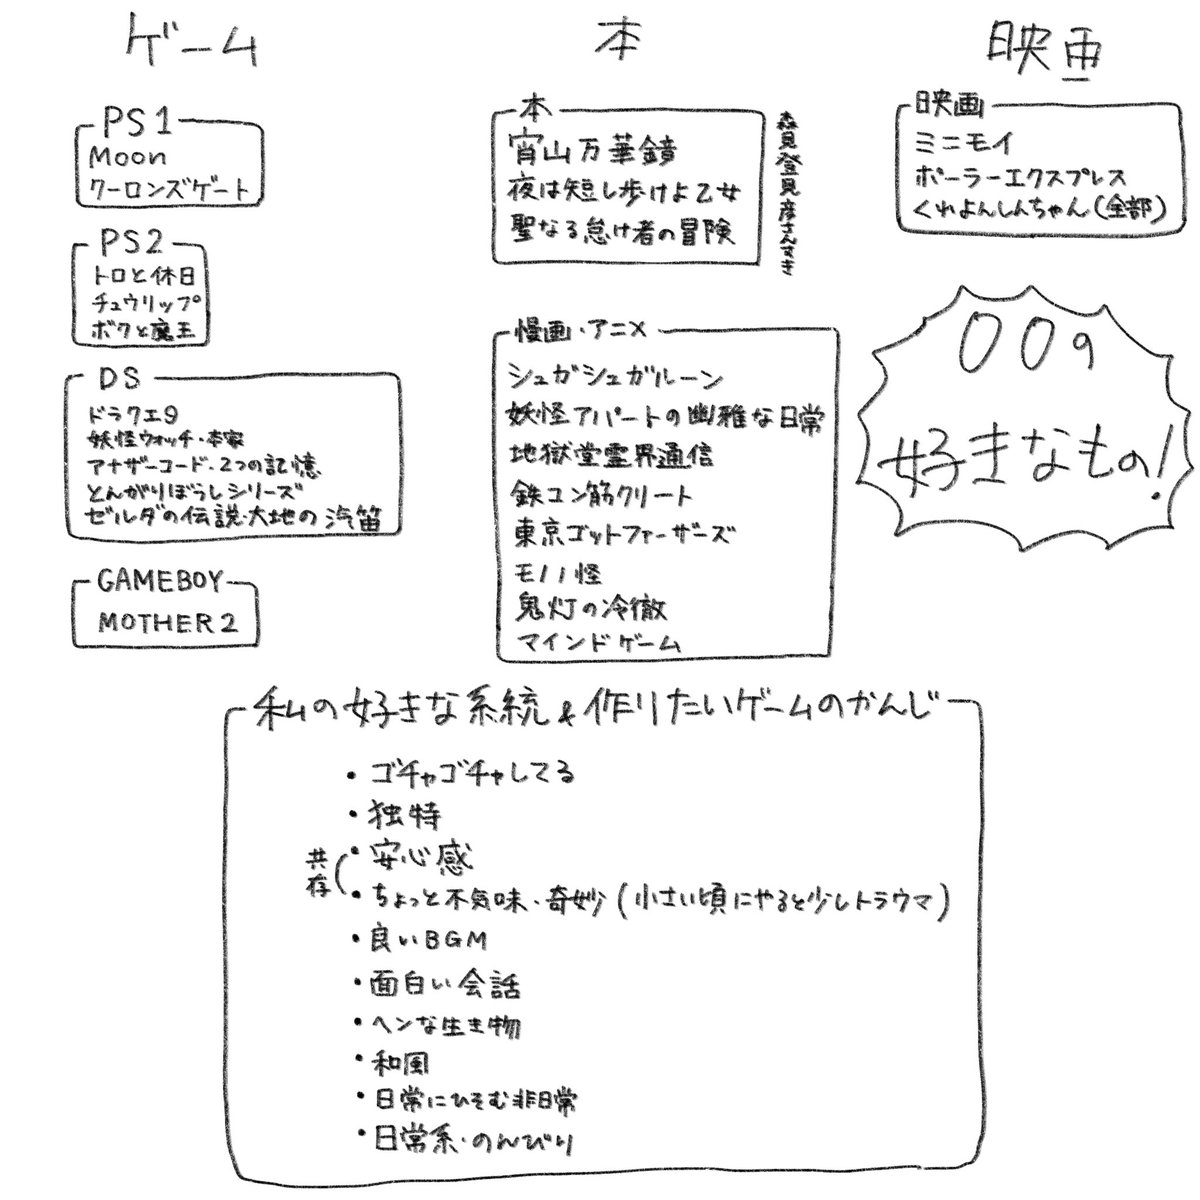 ゲーム
PS1
Moon
クーロンズゲート
PS2
トロと休日
チュウリップ
ボクと魔王
DS
ドラクエ9
妖怪ウォッチ・本家
アナザーコード・2つの記憶
とんがりぼうしシリーズ
ゼルダの伝説・大地の汽笛
GAMEBOY
MOTHER2
本
本
宵山万華鏡
夜は短し歩けよ乙女
聖なる怠け者の冒険
森見登見彦さんすき
漫画・アニメ
シュガシュガルーン
妖怪アパートの幽雅な日常
地獄堂霊界通信
鉄コン筋クリート
東京ゴットファーザーズ
モノノ怪
鬼灯の冷徹
マインドゲーム
映画
映画
ミニモイ
ポーラーエクスプレス
くれよんしんちゃん(全部)
〇〇の
好きなもの!
私の好きな系統&作りたいゲームのかんじ
・ゴチャゴチャしてる
・独特
共存
・安心感
・ちょっと不気味・奇妙(小さい頃にやると少しトラウマ)
・良いBGM
・面白い会話
・ヘンな生き物
・和風
・日常にひそむ非日常
・日常系・のんびり